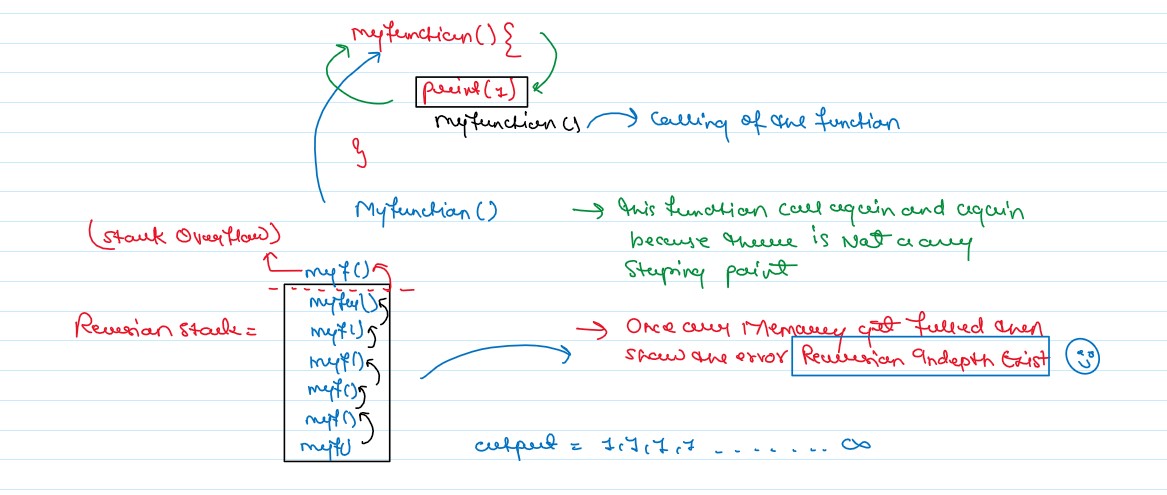 myfunction() {
print(1)
myfunction() → Calling of the function
}
Myfunction() → this function call again and again
because there is Not a any
Stoping point
(stack Overflow)
myf()
myfu()
Recursion stack =
myf()
myf()
myf()
myf()
myf()
→ Once any Memory get fulled then
show the error Recursion Indepth Exist
output = 1,1,1,1 ........ ∞